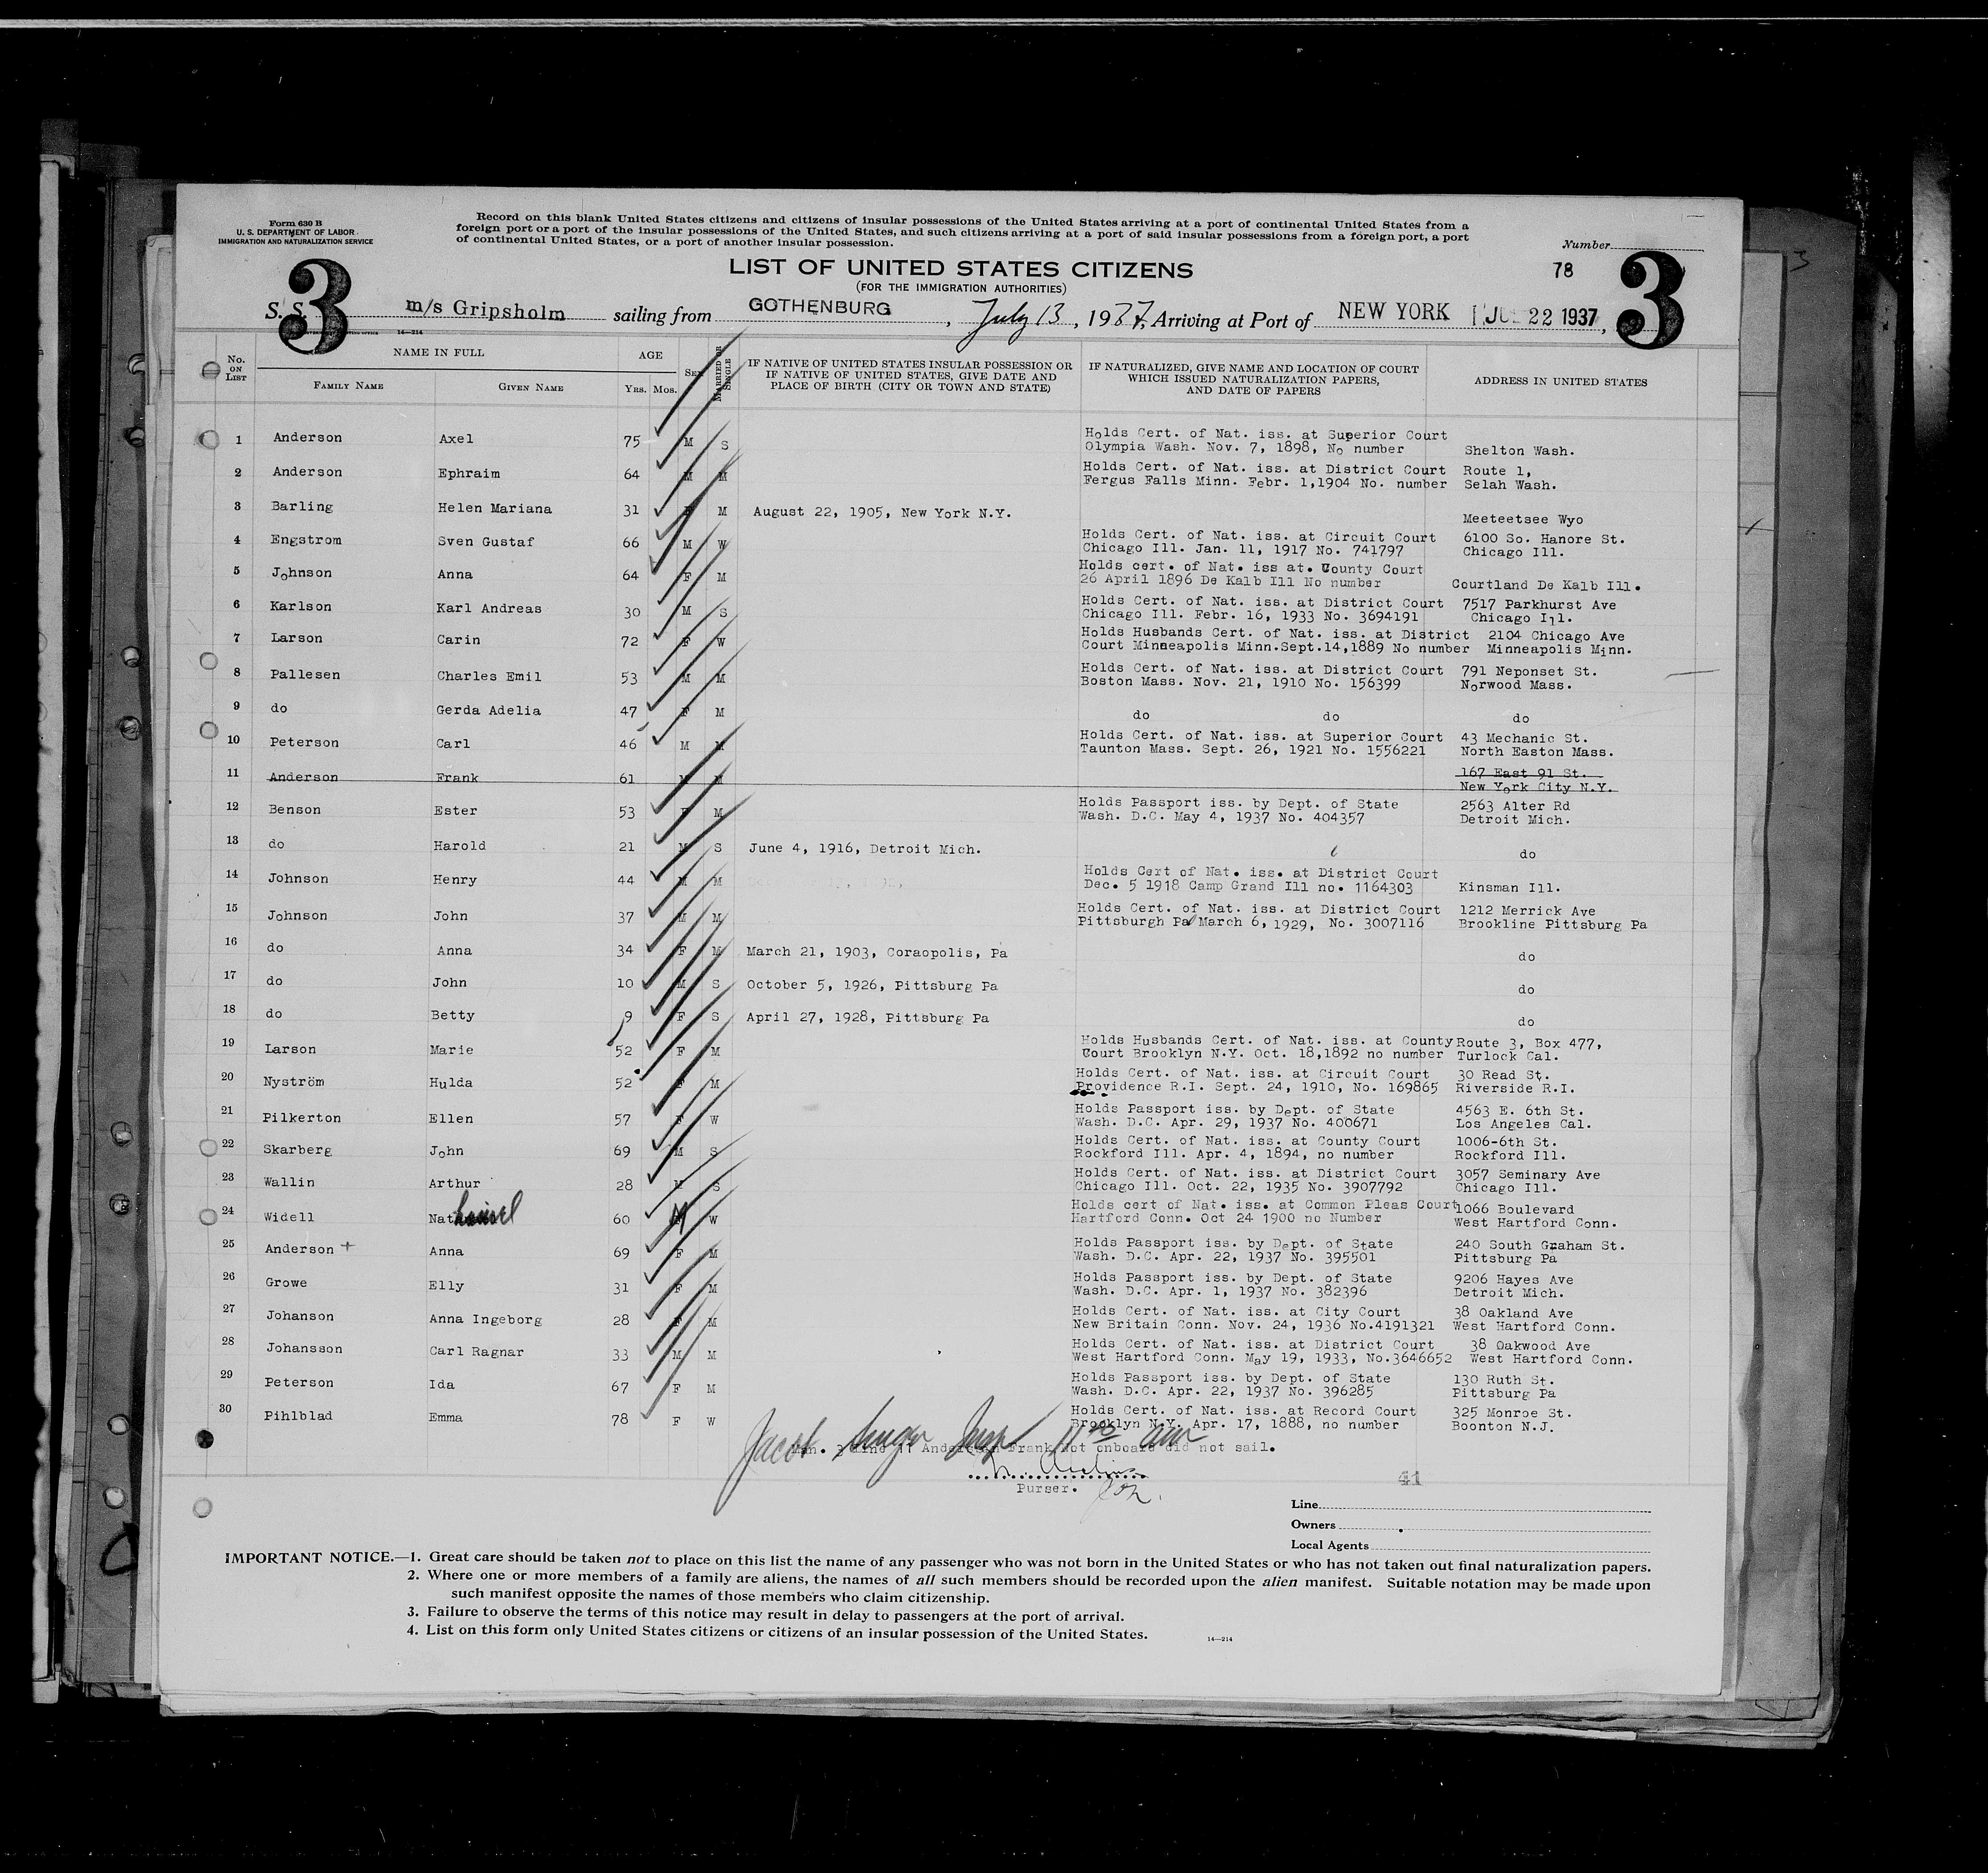 Form 630 B
U. S. DEPARTMENT OF LABOR
IMMIGRATION AND NATURALIZATION SERVICE
Record on this blank United States citizens and citizens of insular possessions of the United States arriving at a port of continental United States from a
foreign port or a port of the insular possessions of the United States, and such citizens arriving at a port of said insular possessions from a foreign port, a port
of continental United States, or a port of another insular possession.
Number
78
3
3
LIST OF UNITED STATES CITIZENS
(FOR THE IMMIGRATION AUTHORITIES)
S. S. m/s Gripsholm sailing from GOTHENBURG, July 13, 1937, Arriving at Port of NEW YORK JUL 22 1937,
14—214
No. ON LIST
NAME IN FULL
FAMILY NAME GIVEN NAME
AGE
YRS. MOS.
SEX
MARRIED OR SINGLE
IF NATIVE OF UNITED STATES INSULAR POSSESSION OR
IF NATIVE OF UNITED STATES, GIVE DATE AND
PLACE OF BIRTH (CITY OR TOWN AND STATE)
IF NATURALIZED, GIVE NAME AND LOCATION OF COURT
WHICH ISSUED NATURALIZATION PAPERS,
AND DATE OF PAPERS
ADDRESS IN UNITED STATES
1 Anderson Axel 75 M S Holds Cert. of Nat. iss. at Superior Court
Olympia Wash. Nov. 7, 1898, No number Shelton Wash.
2 Anderson Ephraim 64 M M Holds Cert. of Nat. iss. at District Court Route 1,
Fergus Falls Minn. Febr. 1,1904 No. number Selah Wash.
3 Barling Helen Mariana 31 F M August 22, 1905, New York N.Y. Meeteetsee Wyo
4 Engstrom Sven Gustaf 66 M W Holds Cert. of Nat. iss. at Circuit Court 6100 So. Hanore St.
Chicago Ill. Jan. 11, 1917 No. 741797 Chicago Ill.
5 Johnson Anna 64 F M Holds cert. of Nat. iss at. County Court
26 April 1896 De Kalb Ill No number Courtland De Kalb Ill.
6 Karlson Karl Andreas 30 M S Holds Cert. of Nat. iss. at District Court 7517 Parkhurst Ave
Chicago Ill. Febr. 16, 1933 No. 3694191 Chicago Ill.
7 Larson Carin 72 F W Holds Husbands Cert. of Nat. iss. at District 2104 Chicago Ave
Court Minneapolis Minn.Sept.14,1889 No number Minneapolis Minn.
8 Pallesen Charles Emil 53 M M Holds Cert. of Nat. iss. at District Court 791 Neponset St.
Boston Mass. Nov. 21, 1910 No. 156399 Norwood Mass.
9 do Gerda Adelia 47 F M do do do
10 Peterson Carl 46 M M Holds Cert. of Nat. iss. at Superior Court 43 Mechanic St.
Taunton Mass. Sept. 26, 1921 No. 1556221 North Easton Mass.
11 Anderson Frank 61 M M 167 East 91 St.
New York City N.Y.
12 Benson Ester 53 F M Holds Passport iss. by Dept. of State 2563 Alter Rd
Wash. D.C. May 4, 1937 No. 404357 Detroit Mich.
13 do Harold 21 M S June 4, 1916, Detroit Mich. do
14 Johnson Henry 44 M M Holds Cert of Nat. iss. at District Court
Dec. 5 1918 Camp Grand Ill no. 1164303 Kinsman Ill.
15 Johnson John 37 M M Holds Cert. of Nat. iss. at District Court 1212 Merrick Ave
Pittsburgh Pa March 6, 1929, No. 3007116 Brookline Pittsburg Pa
16 do Anna 34 F M March 21, 1903, Coraopolis, Pa do
17 do John 10 M S October 5, 1926, Pittsburg Pa do
18 do Betty 9 F S April 27, 1928, Pittsburg Pa do
19 Larson Marie 52 F M Holds Husbands Cert. of Nat. iss. at County Route 3, Box 477,
Court Brooklyn N.Y. Oct. 18,1892 no number Turlock Cal.
20 Nyström Hulda 52 F M Holds Cert. of Nat. iss. at Circuit Court 30 Read St.
Providence R.I. Sept. 24, 1910, No. 169865 Riverside R.I.
21 Pilkerton Ellen 57 F W Holds Passport iss. by Dept. of State 4563 E. 6th St.
Wash. D.C. Apr. 29, 1937 No. 400671 Los Angeles Cal.
22 Skarberg John 69 M S Holds Cert. of Nat. iss. at County Court 1006-6th St.
Rockford Ill. Apr. 4, 1894, no number Rockford Ill.
23 Wallin Arthur 28 M S Holds Cert. of Nat. iss. at District Court 3057 Seminary Ave
Chicago Ill. Oct. 22, 1935 No. 3907792 Chicago Ill.
24 Widell Nathaniel 60 M W Holds cert of Nat. iss. at Common Pleas Court 1066 Boulevard
Hartford Conn. Oct 24 1900 no Number West Hartford Conn.
25 Anderson + Anna 69 F M Holds Passport iss. by Dept. of State 240 South Graham St.
Wash. D.C. Apr. 22, 1937 No. 395501 Pittsburg Pa
26 Growe Elly 31 F M Holds Passport iss. by Dept. of State 9206 Hayes Ave
Wash. D.C. Apr. 1, 1937 No. 382396 Detroit Mich.
27 Johanson Anna Ingeborg 28 F M Holds Cert. of Nat. iss. at City Court 38 Oakland Ave
New Britain Conn. Nov. 24, 1936 No.4191321 West Hartford Conn.
28 Johansson Carl Ragnar 33 M M Holds Cert. of Nat. iss. at District Court 38 Oakwood Ave
West Hartford Conn. May 19, 1933, No.3646652 West Hartford Conn.
29 Peterson Ida 67 F M Holds Passport iss. by Dept. of State 130 Ruth St.
Wash. D.C. Apr. 22, 1937 No. 396285 Pittsburg Pa
30 Pihlblad Emma 78 F W Holds Cert. of Nat. iss. at Record Court 325 Monroe St.
Brooklyn N.Y. Apr. 17, 1888, no number Boonton N.J.
Jacob Insp
3 Line 11 Anderson Frank Not onboard did not sail.
Purser.
41
Line
Owners
Local Agents
IMPORTANT NOTICE.—1. Great care should be taken not to place on this list the name of any passenger who was not born in the United States or who has not taken out final naturalization papers.
2. Where one or more members of a family are aliens, the names of all such members should be recorded upon the alien manifest. Suitable notation may be made upon
such manifest opposite the names of those members who claim citizenship.
3. Failure to observe the terms of this notice may result in delay to passengers at the port of arrival.
4. List on this form only United States citizens or citizens of an insular possession of the United States.
14—214